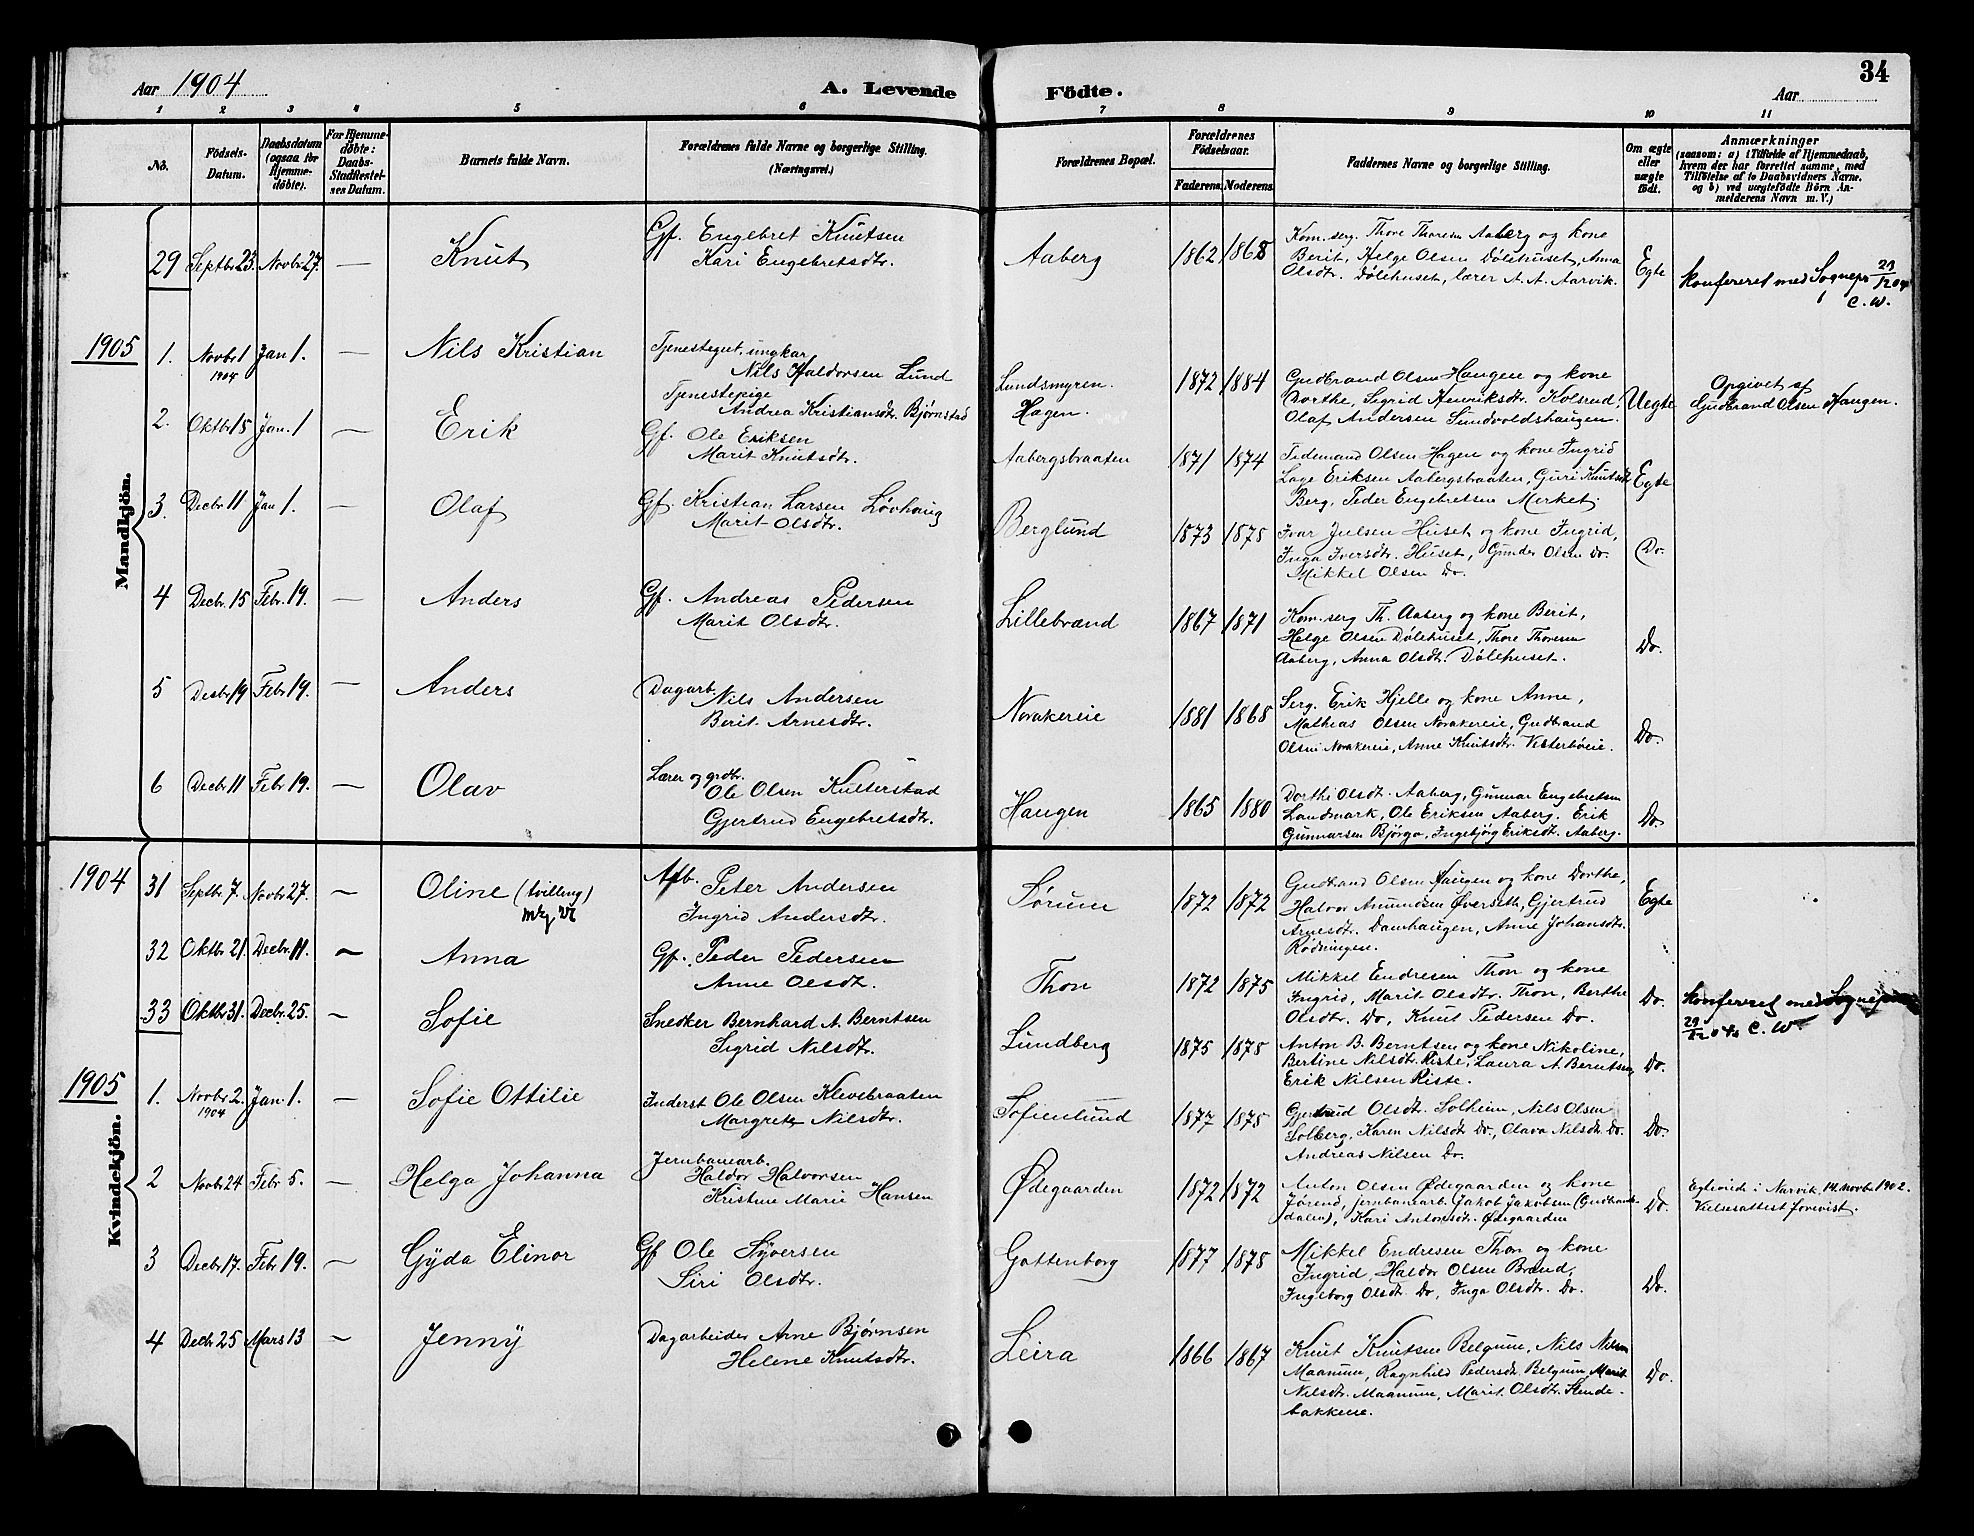 34
Aar 1904
A. Levende
Födte.
Aar
1 2 3 4 5 6 7 8 9 10 11
No.
Födsels-
Datum.
Daabsdatum
(ogsaa for
Hjemme-
döbte).
For Hjemme-
döbte:
Daabs-
Stadfæstel-
ses Datum.
Barnets fulde Navn.
Forældrenes fulde Navne og borgerlige Stilling.
(Næringsvei.)
Forældrenes Bopæl.
Forældrenes
Födselsaar.
Faderens. Moderens.
Faddernes Navne og borgerlige Stilling.
Om ægte
eller
uægte
födt.
Anmærkninger
(saasom: a) i Tilfælde af Hjemmedaab,
hvem der har forrettet samme, med
Tilföielse af to Daabsvidners Navne.
og b) ved uægtefödte Börn An-
melderens Navn m. V.)
Mandkjön.
29 Septbr 23. Novbr 27. — Knut
Gf. Engebret Knutsen
Kari Engebretsdtr.
Aaberg 1862 1868
Kom. serg. Thore Thoresen Aaberg og kone
Berit, Helge Olsen Dölehuset, Anna
Olsdtr. Dölehuset, lærer A. A. Aarvik.
Egte
konfereret med Sognepr 29/12 04
C. W.
1905
1. Novbr 1 Jan 1. — Nils Kristian
1904
Tjenestegut, ungkar
Nils Haldorsen Lund
Tjenestepige
Andrea Kristiansdtr. Bjørnstad
Lundsmyren.
Hagen.
1872 1884
Gudbrand Olsen Haugen og kone
Dorthe, Sigrid Henriksdtr. Kolsrud,
Olaf Andersen Sundvoldshaugen.
Uegte
Opgivet af
Gudbrand Olsen Haugen.
2. Oktbr 15 Jan. 1 — Erik
Gf. Ole Eriksen
Marit Knutsdtr.
Aabergsbraaten 1871 1874
Tidemand Olsen Hagen og kone Ingrid
Lage Eriksen Aabergsbraaten, Guri Knutsdtr
Berg, Peder Engebretsen Merket.
Egte
3. Decbr 11 Jan 1. — Olaf
Gf. Kristian Larsen Løvhaug
Marit Olsdtr.
Berglund 1873 1878
Ivar Julsen Huset og kone Ingrid,
Inga Iversdtr. Huset, Gunder Olsen Do.
Mikkel Olsen Do.
Do.
4 Decbr. 15 Febr. 19. — Anders
Gf. Andreas Pedersen
Marit Olsdtr.
Lillebrænd 1867 1871
Kom. serg Th. Aaberg og kone Berit,
Helge Olsen Dölehuset, Thore Thoresen
Aaberg, Anna Olsdtr. Dölehuset.
Do.
5 Decbr 19 Febr 19. — Anders
Dagarb. Nils Andersen
Berit Arnesdtr.
Norakereie 1881 1868
Serg. Erik Hjelle og kone Anne,
Mathias Olsen Norakereie, Gudbrand
Olsen Norakereie, Anne Knutsdtr. Vesterbøeie.
Do.
6 Decbr 11 Febr 19. — Olav
Lærer og grdbr.
Ole Olsen Kulterstad
Gjertrud Engebretsdtr.
Haugen 1865 1880
Dorthe Olsdtr. Aaberg, Gunnar Engebretsen
Landmark, Ole Eriksen Aaberg. Erik
Gunnarsen Bjørgo, Ingebjørg Eriksdtr. Aaberg.
Do.
Kvindekjön.
1904
31 Septbr 7. Novbr 27. — Oline (tvilling)
Afb. Peter Andersen
Ingrid Andersdtr.
Sørum 1872 1872
Gudbrand Olsen Haugen og kone Dorthe,
Halvor Amundsen Øverseth, Gjertrud
Arnesdtr. Damhaugen, Anne Johansdtr.
Rødningen.
Egte
32 Oktbr 21. Decbr. 11. — Anna
Gf. Peder Pedersen
Anne Olsdt.
Thon 1872 1875
Mikkel Endresen Thon og kone
Ingrid, Marit Olsdtr. Thon, Berthe
Olsdtr. Do, Knut Pedersen Do.
Do.
33 Oktbr 31. Decbr. 25. — Sofie
Snedker Bernhard A. Berntsen
Sigrid Nilsdtr.
Lundberg 1875 1878
Anton B. Berntsen og kone Nikoline,
Bertine Nilsdtr. Riste, Laura A. Berntsen,
Erik Nilsen Riste.
Do.
konfereret med Sognepr
29/12 04 C. W.
1905
1. Novbr 2. Jan. 1. — Sofie Ottilie
1904
Inderst Ole Olsen Klevebraaten
Margrete Nilsdtr.
Sofienlund 1877 1878
Gjertrud Olsdtr. Solheim, Nils Olsen
Solberg, Karen Nilsdtr Do., Olava Nilsdtr Do.
Andreas Nilsen Do.
Do.
2 Novbr 24 Febr 5. — Helga Johanna
Jernbanearb.
Haldor Halvorsen
Kristine Marie Hansen
Ødegaarden 1872 1872
Anton Olsen Ødegaarden og kone
Jørend, jernbanearb. Jakob Jakobsen (Gudbrands-
dalen), Kari Antonsdtr. Ødegaarden
Do.
Egteviede i Narvik, 14. novbr. 1902.
Vielsesattest forevist.
3 Decbr 17. Febr 19. — Gyda Elinor
Gf Ole Syversen
Siri Olsdtr.
Gottenborg 1877 1878
Mikkel Endresen Thon og kone
Ingrid, Haldor Olsen Brænd,
Ingeborg Olsdtr Do, Inga Olsdtr. Do.
Do.
4 Decbr 25 Mars 13 — Jenny
Dagarbeider Arne Bjørnsen
Helene Knutsdtr.
Leira 1866 1867
Knut Knutsen Belgum, Nils Nilsen
Maanum, Ragnhild Pedersdtr. Belgum, Marit
Nilsdtr. Maanum, Marit Olsdtr. Stende-
bakkene.
Do.